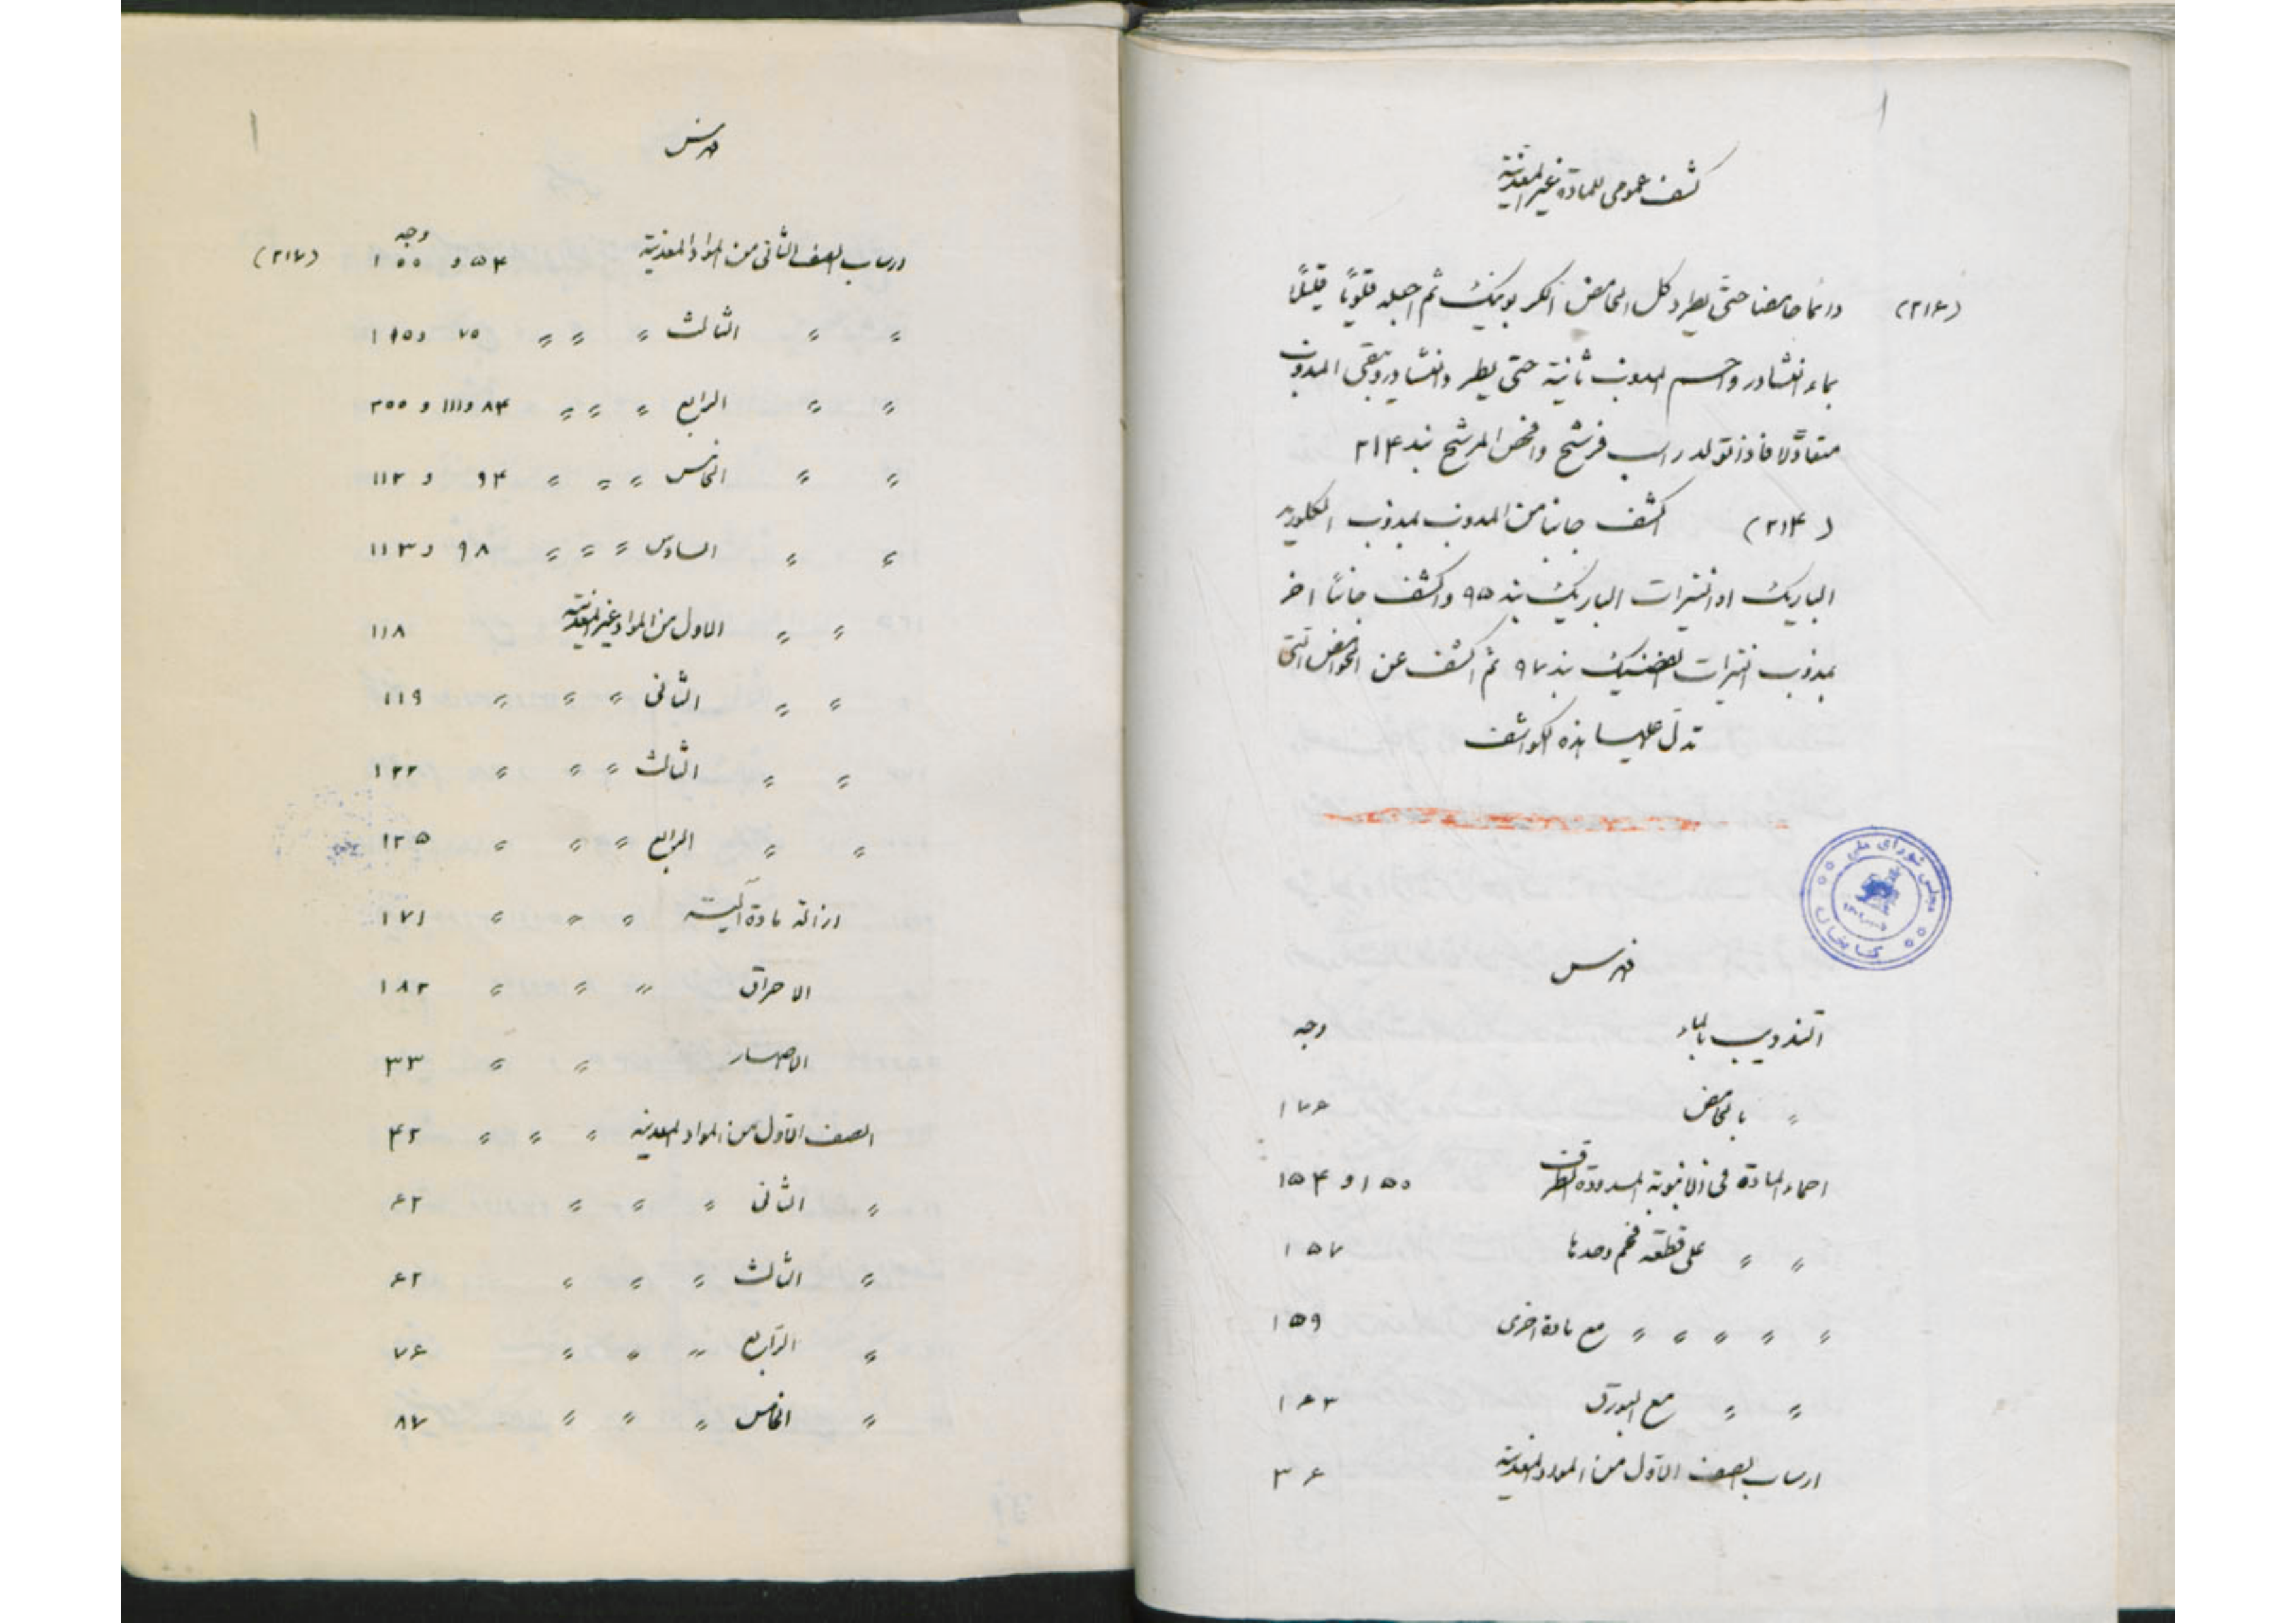 كشف عمومى للمادة غير المعدنية
(٢١۶) دائما حامضا حتّى يطرد كل الحامض الكربونيك ثم اجعله قلويّاً قليلاً
بماء النشادر واحم المذوب ثانية حتى يطرد النشادر ويبقى المذوب
متعادلا فاذا تولد راسب فرشح وافحص المرشح بند ٢١۴
(٢١۴) اكشف جانبا من المذوب بمذوب الكلوريد
الباريك او النيترات الباريك بند ٩۵ واكشف جانبًا اخر
بمذوب نيترات الفضيك بند ٩٧ ثم اكشف عن الحوامض التى
تدل عليها هذه الكواشف
مجلس شورای ملی
كتابخانه
فهرس
التذويب بالماء وجه
〃 بالحامض ١٧۶
احماء المادة فى الانبوبة المسدودة الطرف ١۵٠ و ١۵۴
〃 〃 على قطعه فحم وحدها ١۵٧
〃 〃 〃 〃 〃 〃 مع مادة اخرى ١۵٩
〃 〃 〃 مع البورق ١۶٣
ارساب الصف الاوّل من المواد المعدنية ٣۶
فهرس
وجه
ارساب الصف الثانى من المواد المعدنية ۵۴ و ١٠٠ (٢١٧)
〃 〃 الثالث 〃 〃 〃 ٧۵ و ١٩۵
〃 〃 الرابع 〃 〃 〃 ٨۴ و ١١١ و ٢٠٠
〃 〃 الخامس 〃 〃 〃 〃 ٩۴ و ١١٢
〃 〃 السادس 〃 〃 〃 ٩٨ و ١١٣
〃 〃 الاول من المواد غير المعدنية ١١٨
〃 〃 الثانى 〃 〃 〃 ١١٩
〃 〃 الثالث 〃 〃 〃 ١٢٢
〃 〃 الرابع 〃 〃 〃 ١٢۵
ازالة مادة آلية 〃 〃 〃 ١٧١
الاحراق 〃 〃 〃 ١٨٢
الاصهار 〃 〃 ٣٣
الصف الاوّل من المواد المعدنية 〃 〃 〃 ۴٢
〃 الثانى 〃 〃 〃 ۶٢
〃 الثالث 〃 〃 〃 ۶٢
〃 الرّابع 〃 〃 〃 ٧۶
〃 الخامس 〃 〃 〃 ٨٧